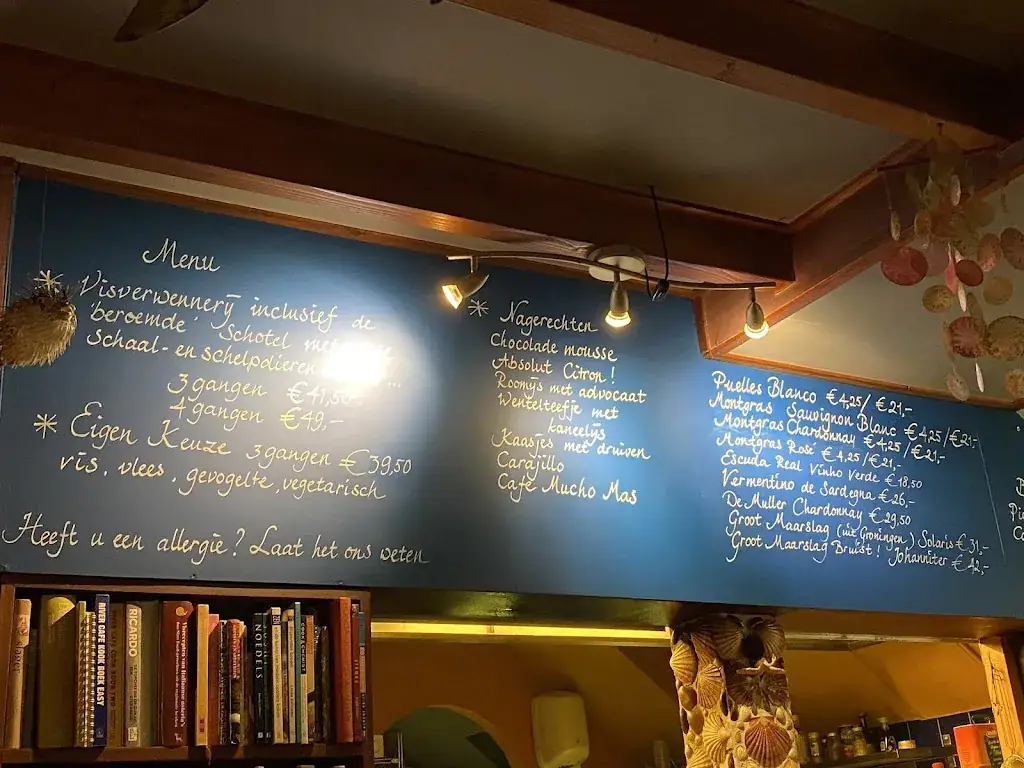 Menu
* Visverwennerij inclusief de
"beroemde" Schotel met
Schaal- en schelpdieren ...
3 gangen €41,50
4 gangen €49,-
* Eigen Keuze 3gangen €39,50
vis, vlees, gevogelte, vegetarisch
Heeft u een allergie? Laat het ons weten
* Nagerechten
Chocolade mousse
Absolut Citron!
Roomijs met advocaat
Wentelteefje met
kaneelijs
Kaasjes met druiven
Carajillo
Café Mucho Mas
Puelles Blanco €4,25/ €21,-
Montgras Sauvignon Blanc €4,25/€21,-
Montgras Chardonnay €4,25/€21,-
Montgras Rosé €4,25/€21,-
Escuda Real Vinho Verde €18,50
Vermentino de Sardegna €26,-
De Muller Chardonnay €29,50
Groot Maarslag (uit Groningen) Solaris €31,-
Groot Maarslag Bruist! Johanniter €42,-
RIVER CAFE KOOK BOEK EASY
RICARDO
NOEDELS